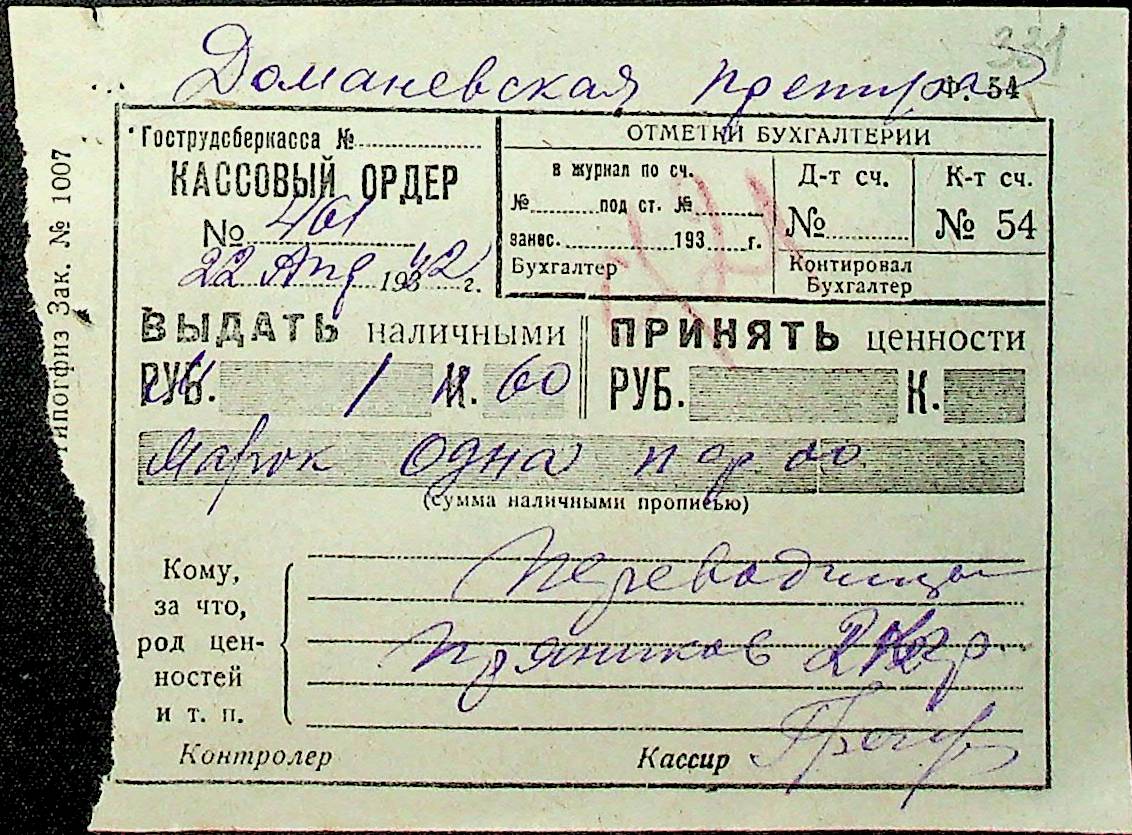 331
Доманевская претура
Ф. 54
Гострудсберкасса №
КАССОВЫЙ ОРДЕР
№ 461
22 Апр 1942 г.
ОТМЕТКИ БУХГАЛТЕРИИ
в журнал по сч.
№ под ст. №
занес. 193 г.
Бухгалтер
Д-т сч.
№
К-т сч.
№ 54
Контировал
Бухгалтер
ВЫДАТЬ наличными
РУБ. 1 К. 60
ПРИНЯТЬ ценности
РУБ. К.
Марок одна пф 60
(сумма наличными прописью)
Кому,
за что,
род цен-
ностей
и т. п.
Переводчицы
Пряников 2 кгр.
Контролер
Кассир
Типогфиз Зак. № 1007